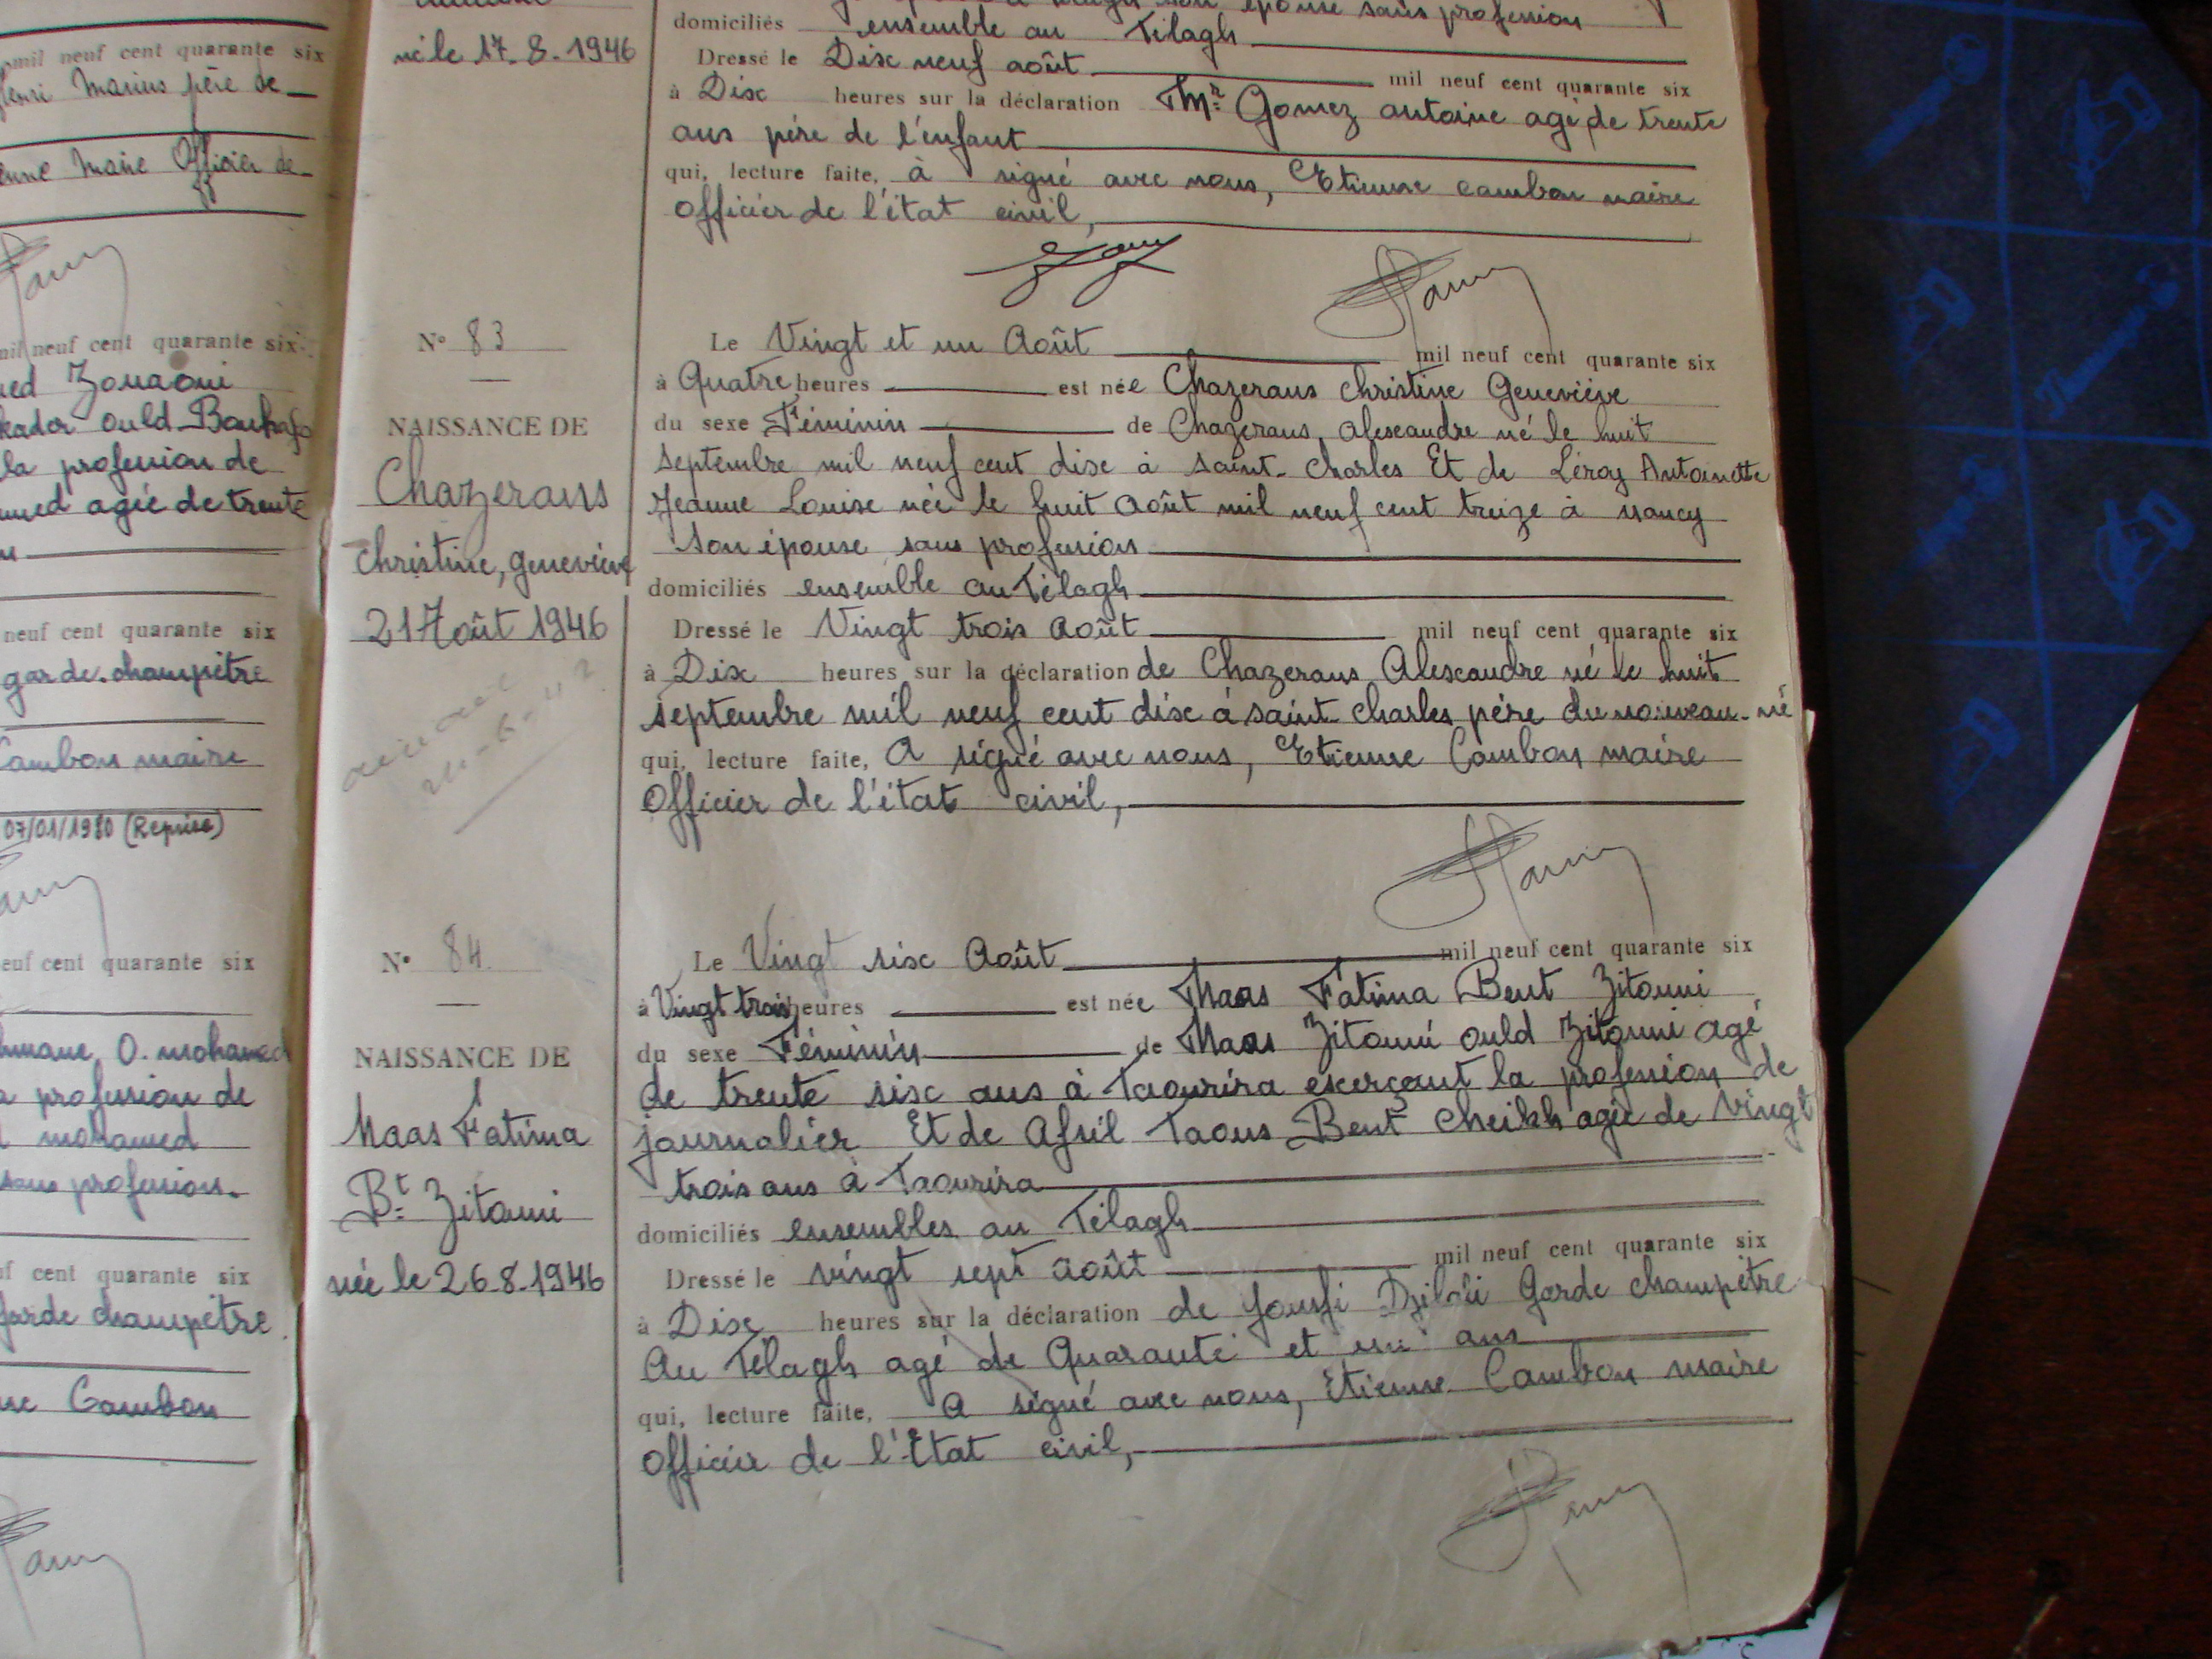 mil neuf cent quarante six
Henri Marius père de
Maire Officier de
mil neuf cent quarante six
Zouaoui
kader ould Bouhafs
la profession de
agée de trente
neuf cent quarante six
garde-champêtre
Cambon maire
07/01/1980 (Reprise)
neuf cent quarante six
O. mohamed
profession de
mohamed
sans profession.
cent quarante six
garde champêtre
Cambon
né le 17-8-1946
son épouse sans profession
domiciliés ensemble au Télagh
Dressé le Disc neuf août mil neuf cent quarante six
à Disc heures sur la déclaration Mr Gomez antoine agé de trente
ans père de l'enfant
qui, lecture faite, à signé avec nous, Etienne cambon maire
officier de l'état civil,
N° 83
NAISSANCE DE
Chazerans
Christine, geneviève
21 Août 1946
Le Vingt et un Août mil neuf cent quarante six
à Quatre heures est née Chazerans christine Geneviève
du sexe Féminin de Chazerans, alescandre né le huit
septembre mil neuf cent disc à saint-charles Et de Léroy Antoinette
Jeanne Louise née le huit août mil neuf cent treize à nancy
son épouse sans profession
domiciliés ensemble au Télagh
Dressé le Vingt trois août mil neuf cent quarante six
à Disc heures sur la déclaration de Chazerans Alescandre né le huit
septembre mil neuf cent disc à saint-charles père du nouveau-né
qui, lecture faite, A signé avec nous, Etienne Cambon maire
Officier de l'état civil,
N° 84
NAISSANCE DE
Maas Fatima
Bt Zitouni
née le 26.8.1946
Le Vingt sisc Août mil neuf cent quarante six
à Vingt trois heures est née Maas Fatima Bent Zitouni
du sexe Féminin de Maas Zitouni ould Zitouni agé
de trente sisc ans à Taourira escerçant la profession de
journalier Et de Afril Taous Bent Cheikh agée de Vingt
trois ans à Taourira
domiciliés ensembles au Télagh
Dressé le vingt sept août mil neuf cent quarante six
à Disc heures sur la déclaration de Yousfi Djilali Garde champêtre
Au Télagh agé de Quarante et un ans
qui, lecture faite, A signé avec nous, Etienne Cambon maire
officier de l'Etat civil,